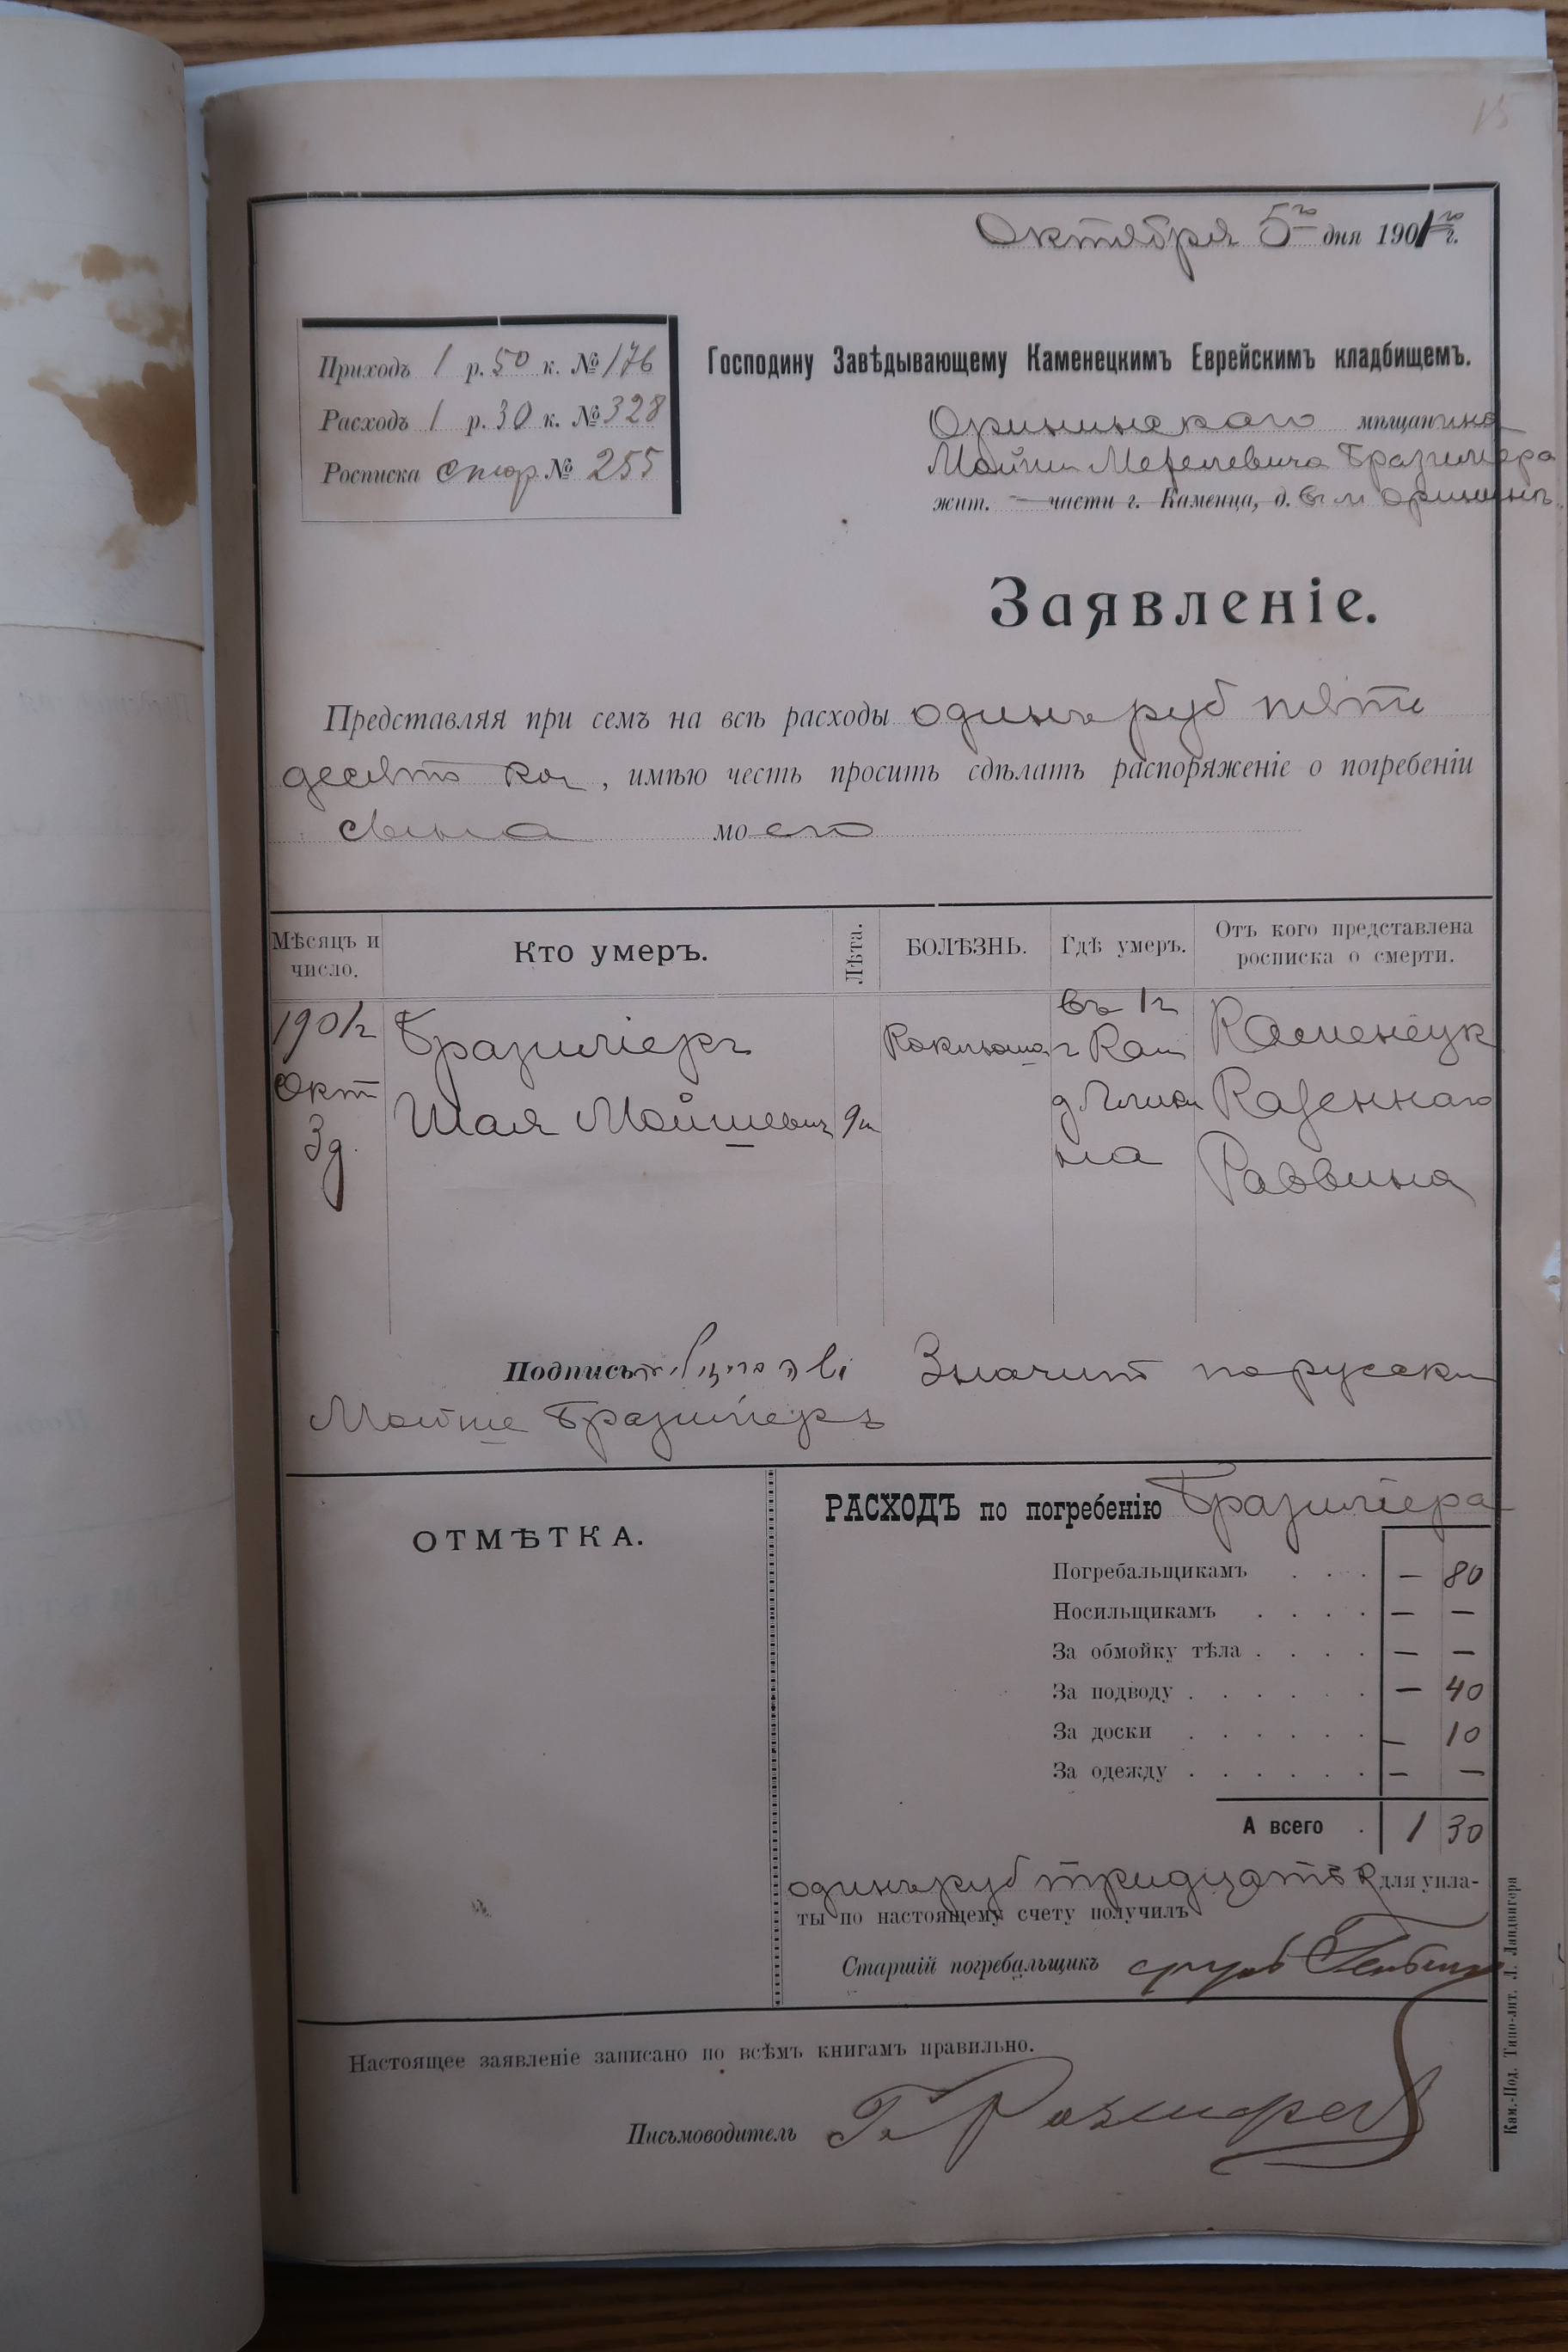 15
Октября 5го дня 1901го г.
Приходъ 1 р. 50 к. № 176
Расходъ 1 р. 30 к. № 328
Росписка № 255
Господину Завѣдывающему Каменецкимъ Еврейскимъ кладбищемъ.
Орининскаго мѣщанина
Мойши Бразилiера
жит. — части г. Каменца, д. в м Орининъ
Заявленіе.
Представляя при семъ на всѣ расходы одинъ руб пять
десятъ коп, имѣю честь просить сдѣлать распоряженіе о погребеніи
сына моего
Мѣсяцъ и число. Кто умеръ. Лѣта. БОЛѢЗНЬ. Гдѣ умеръ. Отъ кого представлена росписка о смерти.
1901г Бразиліеръ Коклюша въ 1ч Каменецк
Окт Шая Мойшевич 9м г Кам Казеннаго
3д. д на Раввина
Подпись Значит по русски
Мойше Бразиліеръ
ОТМѢТКА.
РАСХОДЪ по погребенію Бразиліера
Погребальщикамъ . . . — 80
Носильщикамъ . . . . — —
За обмойку тѣла . . . . — —
За подводу . . . . . . — 40
За доски . . . . . . — 10
За одежду . . . . . . — —
А всего . 1 30
одинъ руб тридцать к для упла-
ты по настоящему счету получилъ
Старшій погребальщикъ
Настоящее заявленіе записано по всѣмъ книгамъ правильно.
Письмоводитель Г.
Кам.-Под. Типо-лит. Л. Ландвигера